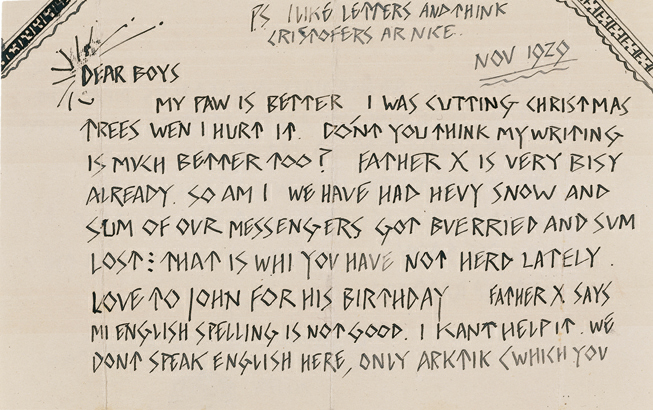 PS I LIKE LETTERS AND THINK
CRISTOFERS AR NICE.
NOV 1929
DEAR BOYS
MY PAW IS BETTER I WAS CUTTING CHRISTMAS
TREES WEN I HURT IT. DONT YOU THINK MY WRITING
IS MUCH BETTER TOO? FATHER X IS VERY BISY
ALREADY. SO AM I WE HAVE HAD HEVY SNOW AND
SUM OF OUR MESSENGERS GOT BUERRIED AND SUM
LOST: THAT IS WHI YOU HAVE NOT HERD LATELY.
LOVE TO JOHN FOR HIS BIRTHDAY FATHER X SAYS
MI ENGLISH SPELLING IS NOT GOOD. I KANT HELP IT. WE
DONT SPEAK ENGLISH HERE, ONLY ARKTIK (WHICH YOU